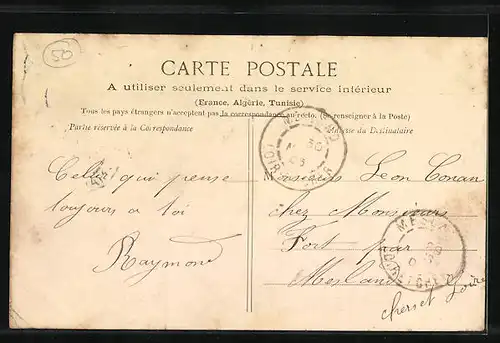 50
CARTE POSTALE
A utiliser seulement dans le service intérieur
(France, Algérie, Tunisie)
Tous les pays étrangers n'acceptent pas la correspondance au recto. (Se renseigner à la Poste)
Partie réservée à la Correspondance
Adresse du Destinataire
Celui qui pense
toujours a toi
Raymond
Monsieur Leon Conan
chez Monsieur
Fort par
Mesland
cher et Loire